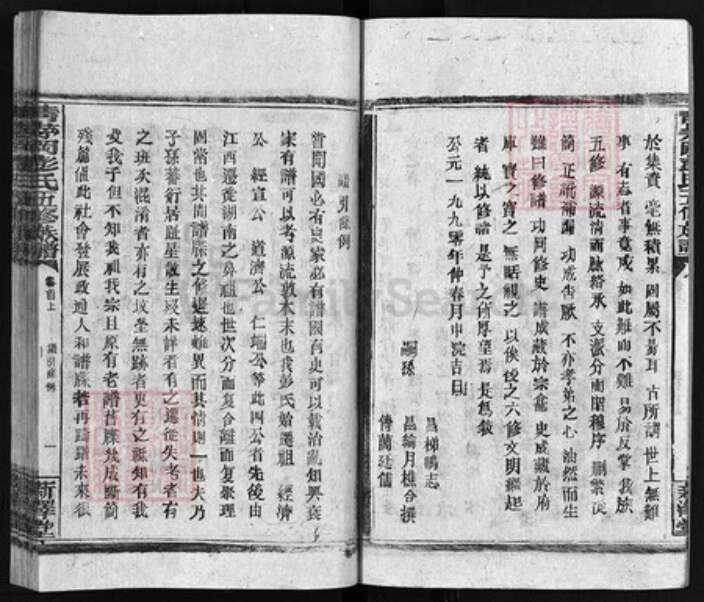 於集費 毫無積累 固屬不易耳 古所謂 世上無難
事 有志者事竟成 如此難而不難 易於反掌 我族
五修 源流清而脉絡承 支派分而昭穆序 刪繁從
簡 正訛補漏 功成告厥 不亦孝弟之心 油然而生
雖曰修譜 功同修史 譜成藏於宗龕 史成藏於府
庫 寶之寶之 無時視之 以俟後之六修 文明繼起
者 統以修譜 予之有厚望焉 是爲敘
公元一九九零年仲春月中浣吉日
嗣孫
昌梯鵬志
昌綸月樵合撰
傳萬廷儒
譜引條例
嘗聞國必有史家必有譜國有史可以觀治亂知興衰
家有譜可以考源流敦本末也我彭氏始遷祖 經濟
公 經宣公 道濟公 仁瑞公等此四公者先後由
江西遷徙湖南之鼻祖也世次分而复合離而复聚理
固當也其間譜牒之修遲速雖異而其情則一也夫乃
子孫蕃衍居趾星散生歿未詳者有之遷徙失考者有
之班次混淆者亦有之坟塋無跡者更有之祗知有我
父我子但不知我祖我宗且原有老譜舊牒竟成斷簡
殘篇值此社會發展政通人和譜牒若再躊躇未來很
青山彭氏五修族譜
卷首上
譜引條例
一
新譯堂
FamilySearch